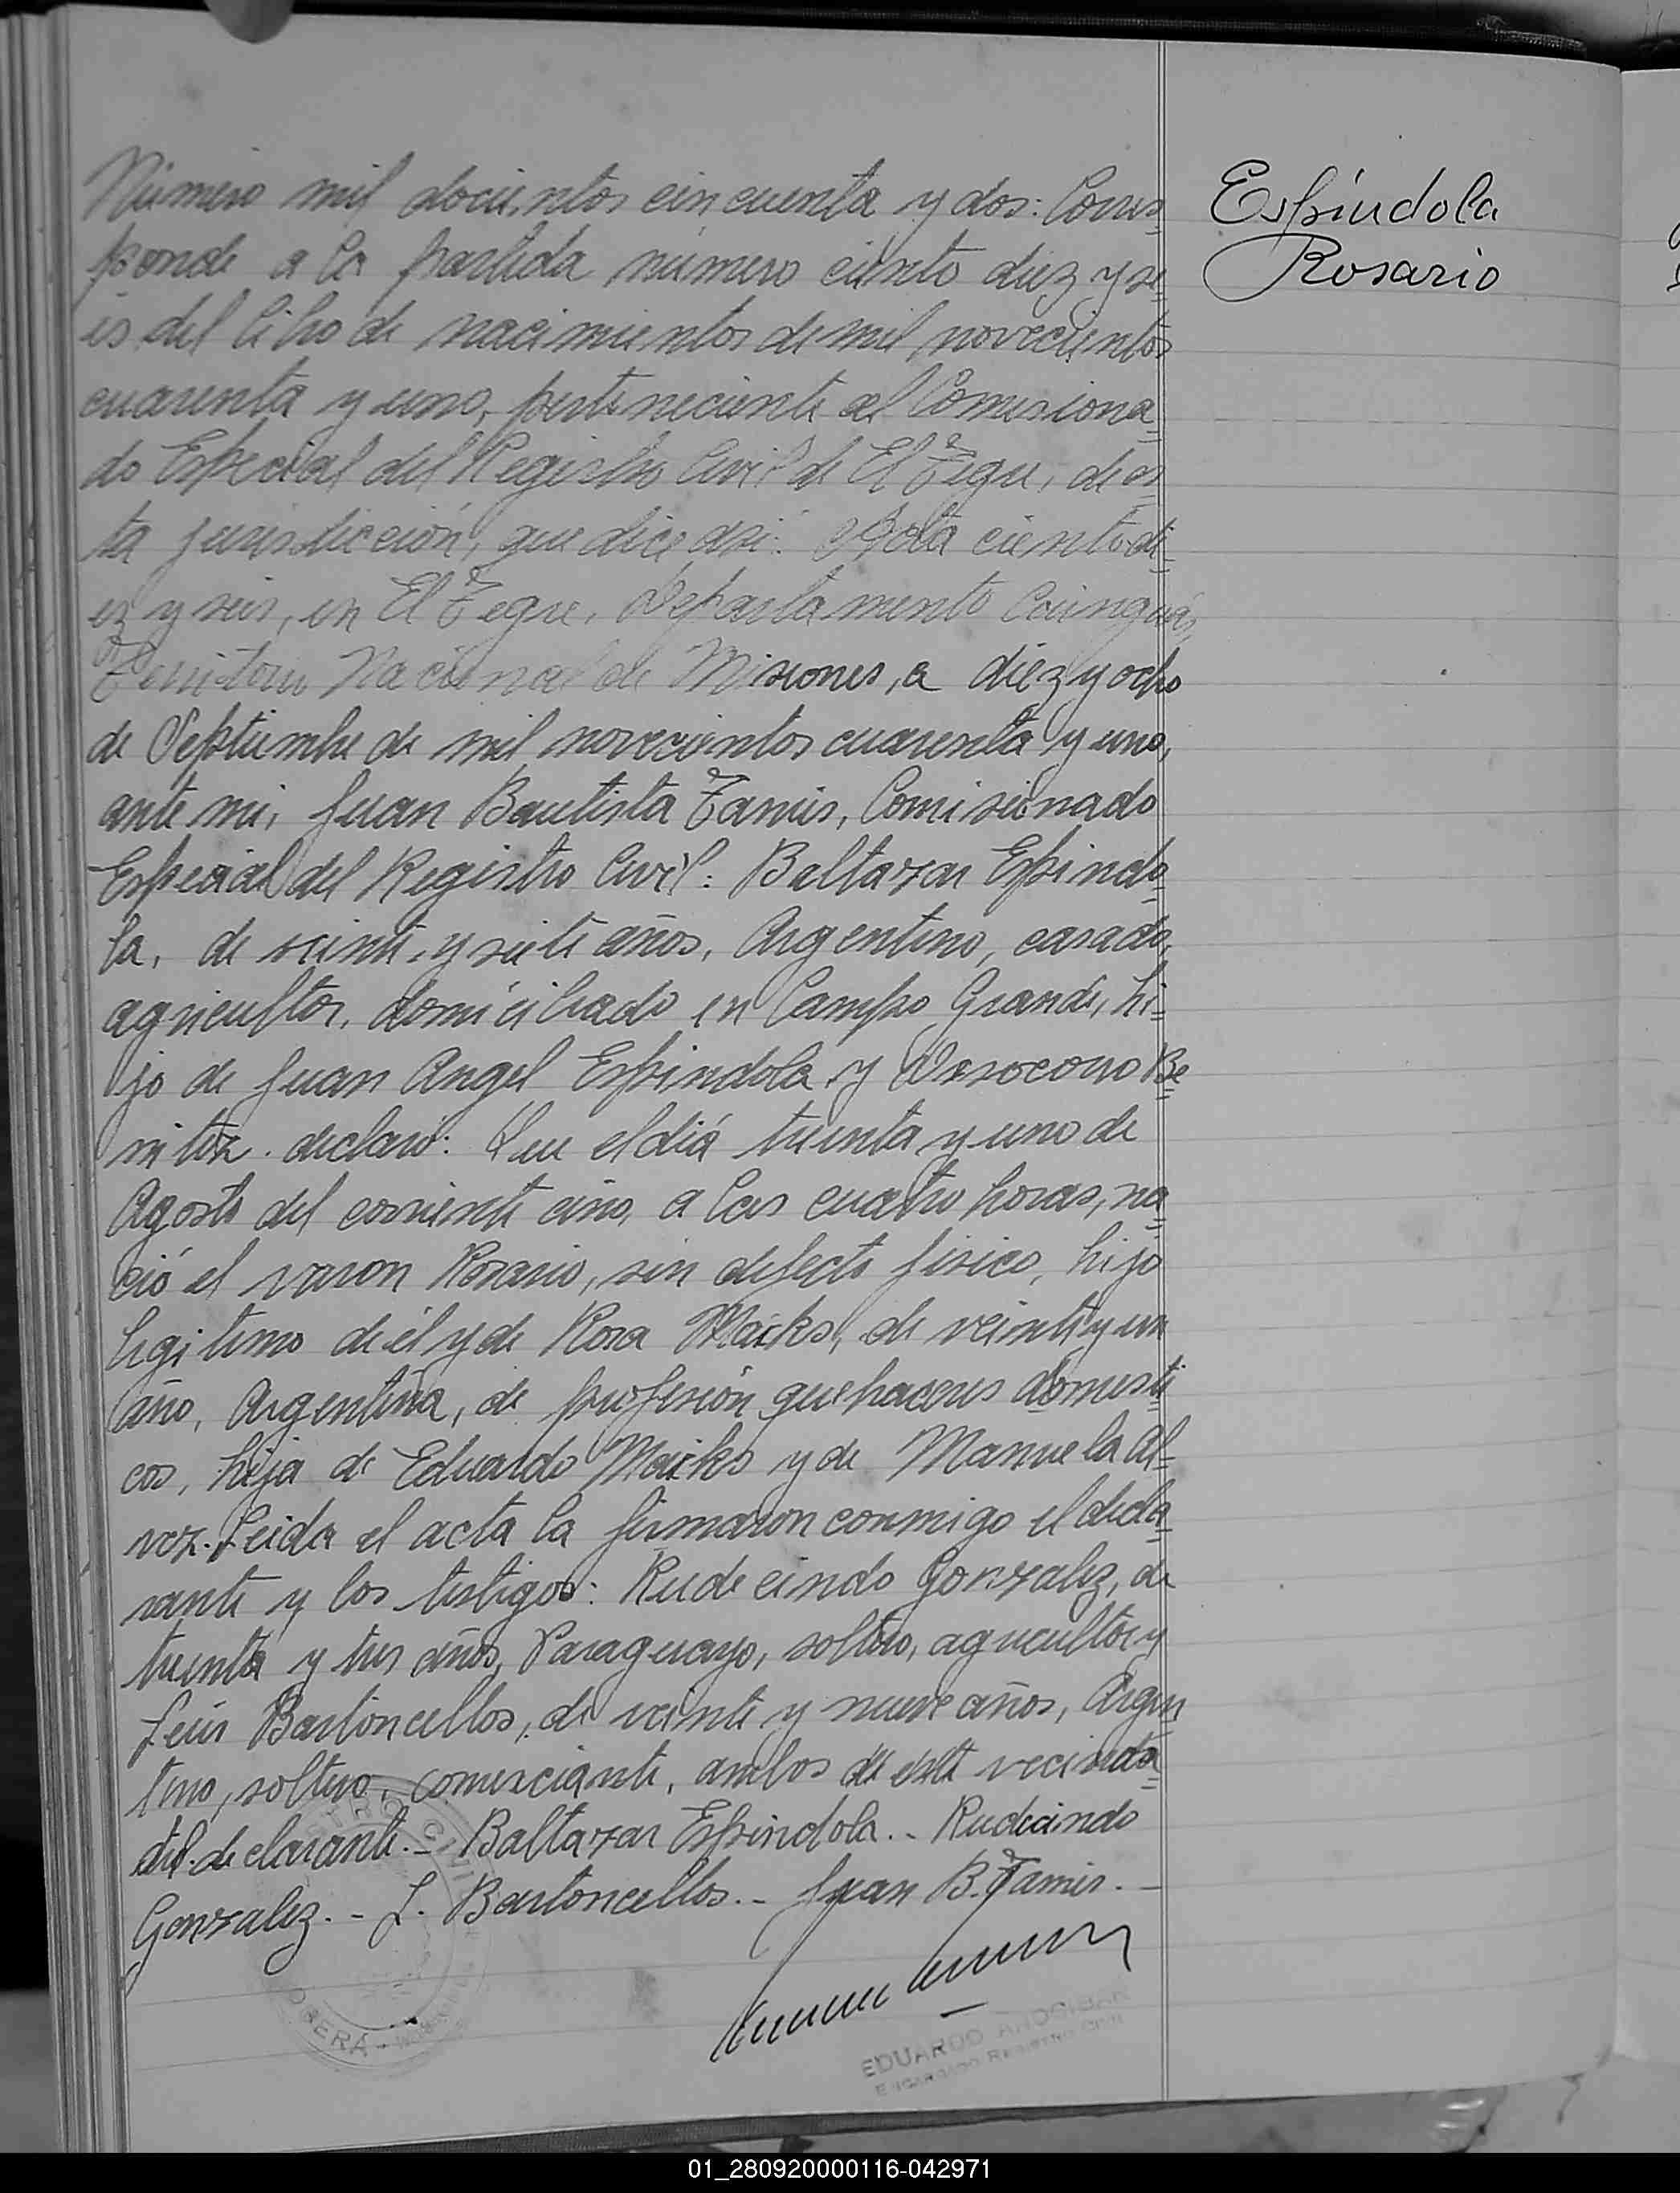 Número mil docientos cincuenta y dos: Corres
ponde a la partida número ciento diez y se
is del libro de nacimientos de mil novecientos
cuarenta y uno, perteneciente al Comisiona
do Especial del Registro Civil de El Tigre, de es
ta jurisdicción, que dice asi: Acta ciento di
ez y seis, en El Tigre, Departamento Cainguás,
Territorio Nacional de Misiones, a diez y ocho
de Septiembre de mil novecientos cuarenta y uno,
ante mi, Juan Bautista Comisionado
Especial del Registro Civil: Baltazar Espindo
la, de veinti y siete años, Argentino, casado,
agricultor, domiciliado en Campo Grande, hi-
jo de Juan Angel Espindola y Be
nitez. declaró: Que el dia treinta y uno de
Agosto del corriente año, a las cuatro horas, na
ció el varon Rosario, sin defecto fisico, hijo
legitimo de él y de Rosa de veinti y un
año, Argentina, de profesión quehaceres domesti
cos, hija de Eduardo y de Manuela Al-
vez. Leida el acta la firmaron conmigo el decla
rante y los testigos: Rudecindo Gonzalez, de
treinta y tres años, Paraguayo, soltero, agricultor y
Bartoncellos, de veinti y nueve años, Argen
tino, soltero, comerciante, ambos de este vecinda
del declarante.- Baltazar Espindola.- Rudecindo
Gonzalez.- L. Bartoncellos.- Juan B.
Espíndola
Rosario
OBERÁ
EDUARDO
ENCARGADO REGISTRO CIVIL
01_280920000116-042971